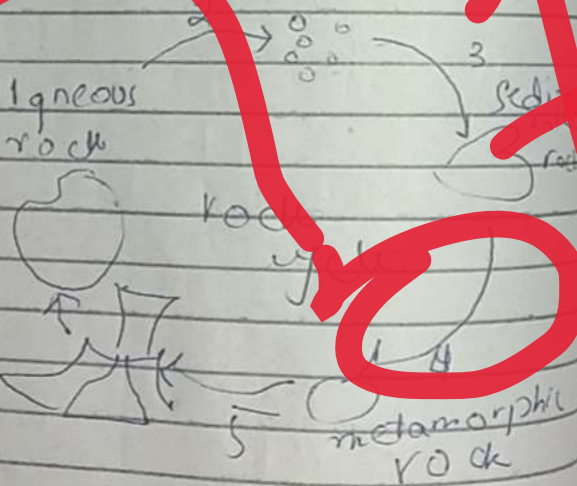 2
3
Igneous
rock
sedi
rock
cycle
4
5
metamorphic
rock